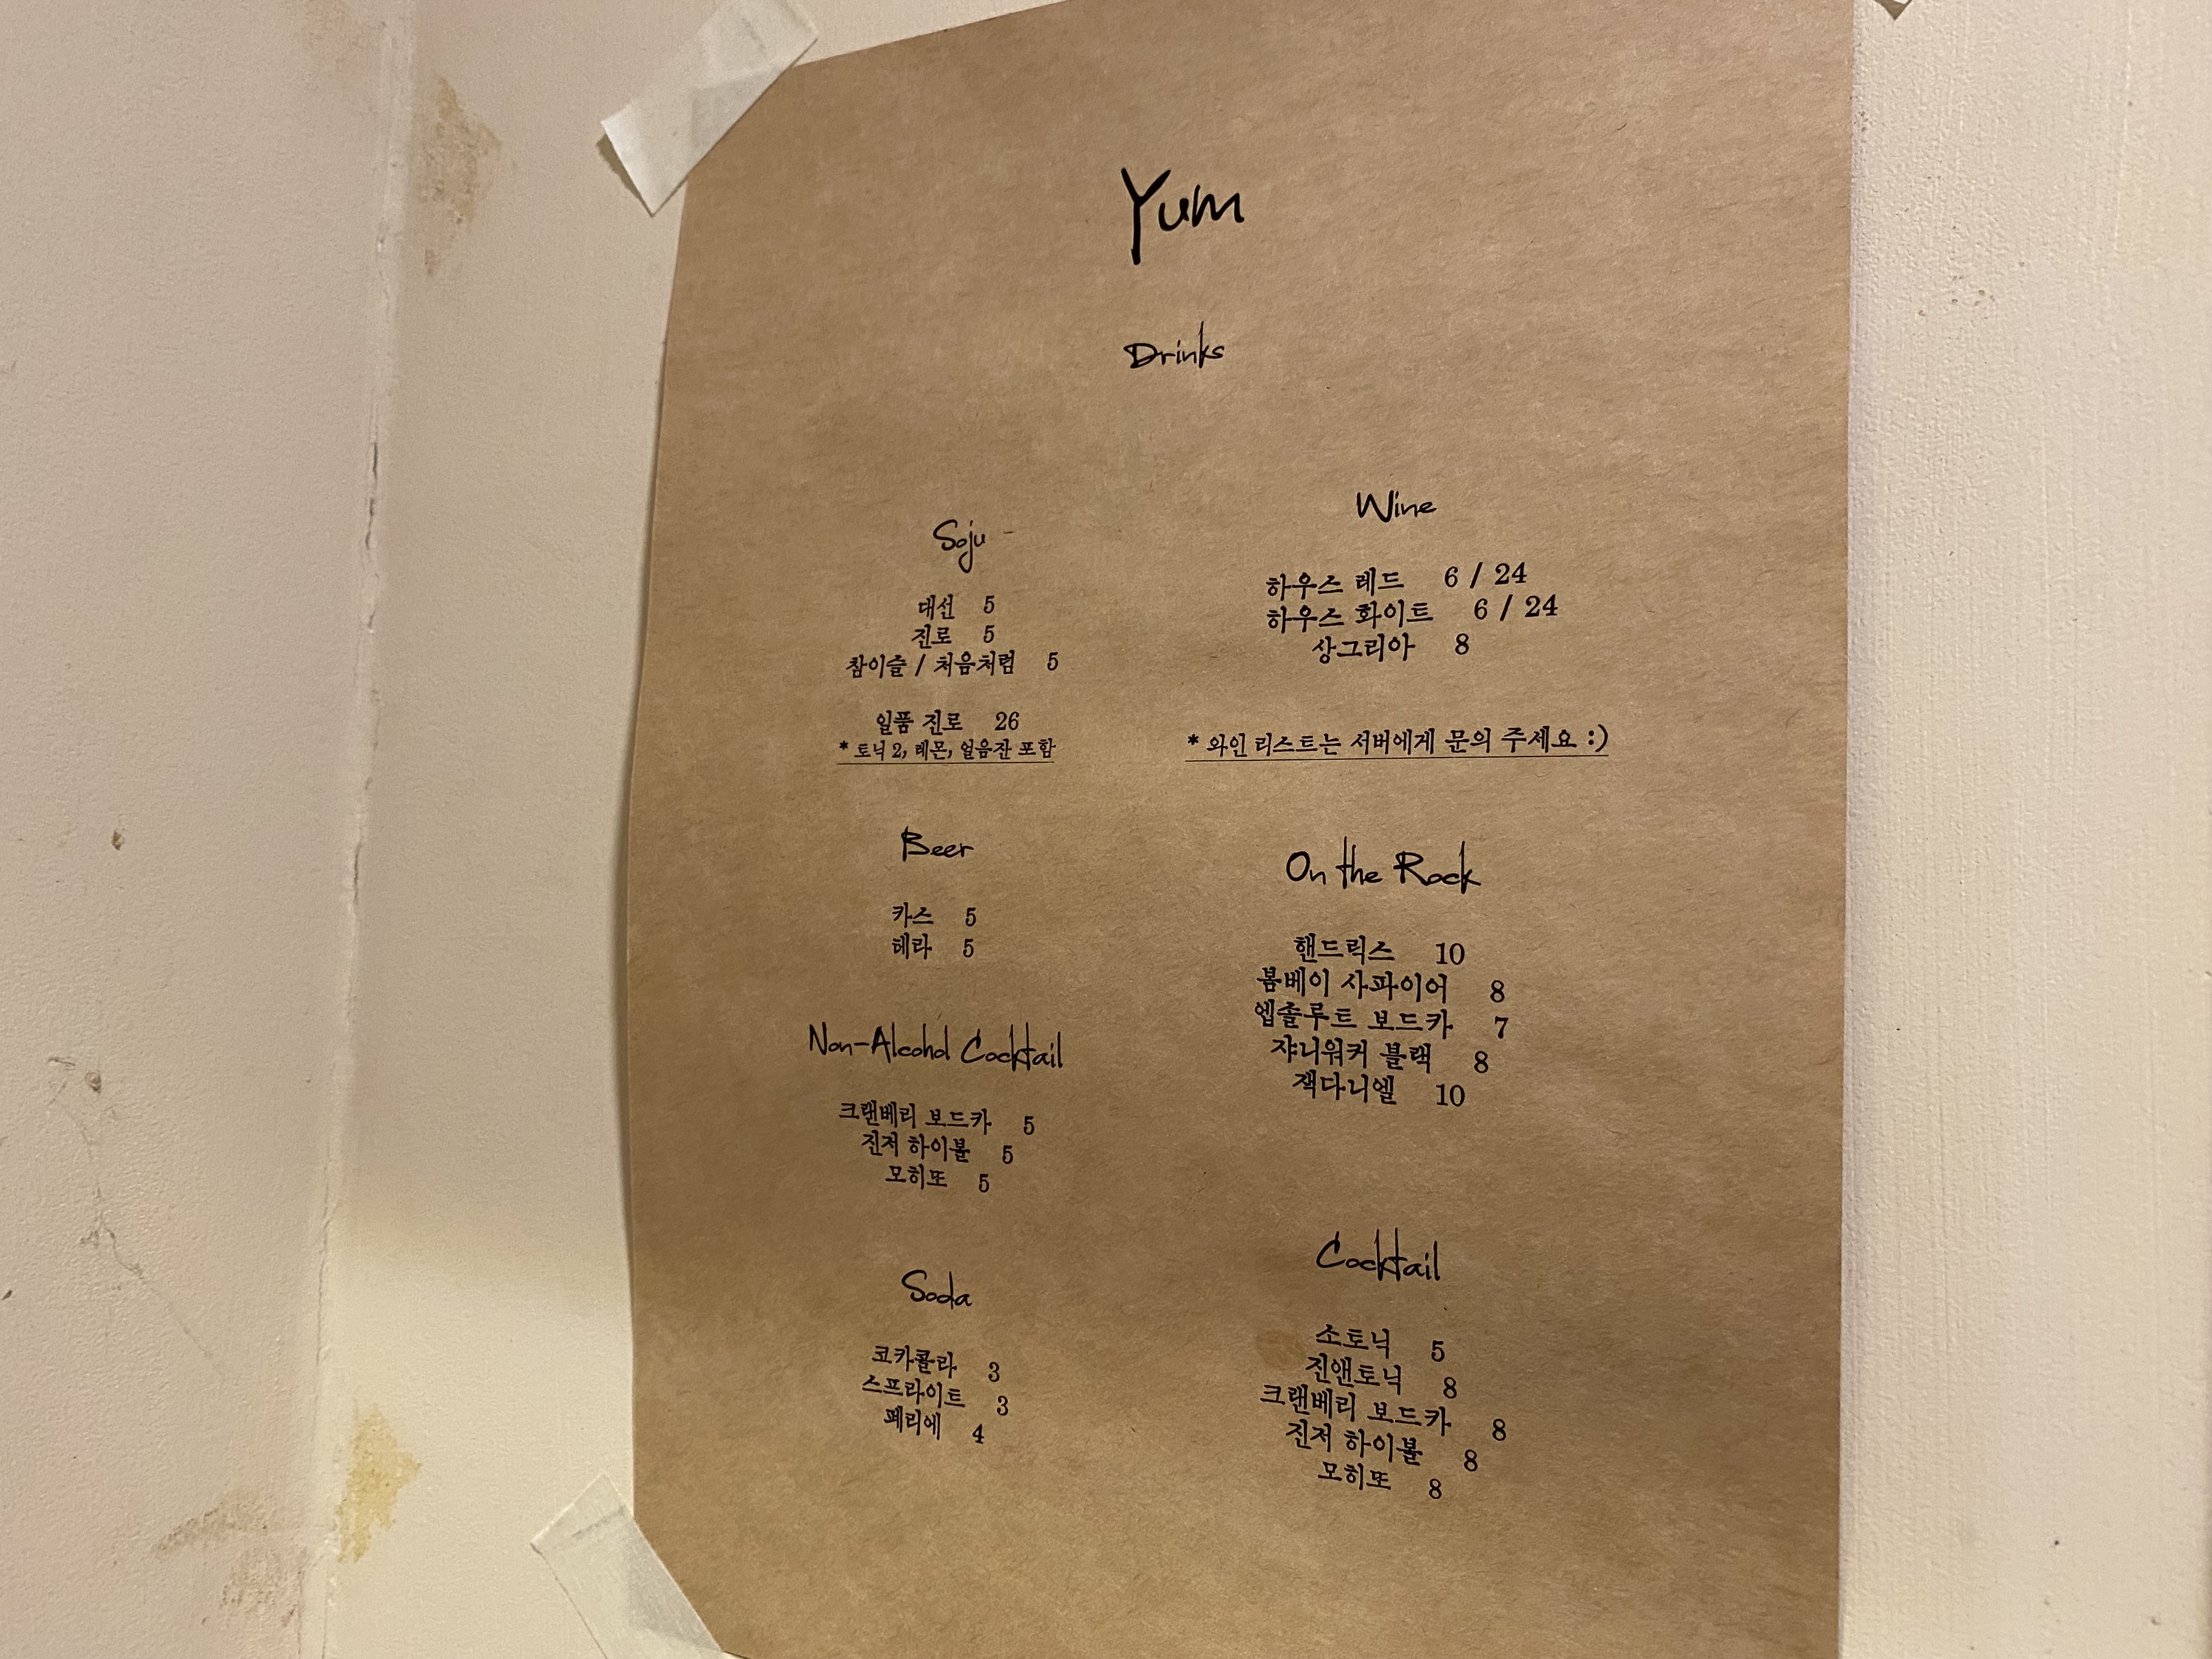 Yum
Drinks
Soju
대선 5
진로 5
참이슬 / 처음처럼 5
일품 진로 26
* 토닉 2, 레몬, 얼음잔 포함
Beer
카스 5
테라 5
Non-Alcohol Cocktail
크랜베리 보드카 5
진저 하이볼 5
모히또 5
Soda
코카콜라 3
스프라이트 3
페리에 4
Wine
하우스 레드 6 / 24
하우스 화이트 6 / 24
상그리아 8
* 와인 리스트는 서버에게 문의 주세요 :)
On the Rock
핸드릭스 10
봄베이 사파이어 8
앱솔루트 보드카 7
쟈니워커 블랙 8
잭다니엘 10
Cocktail
소토닉 5
진앤토닉 8
크랜베리 보드카 8
진저 하이볼 8
모히또 8